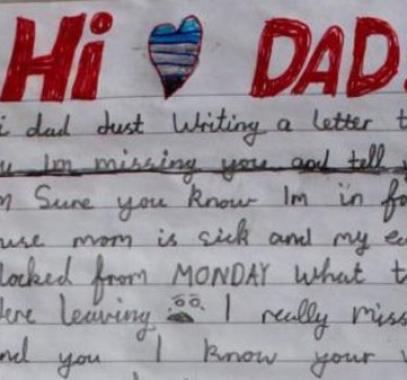 Hi DAD
i dad Just Writing a letter t
u Im missing you and tell y
m Sure you know Im in fo
use mom is sick and my e
locked from MONDAY What t
ere leaving I really miss
nd you I know your